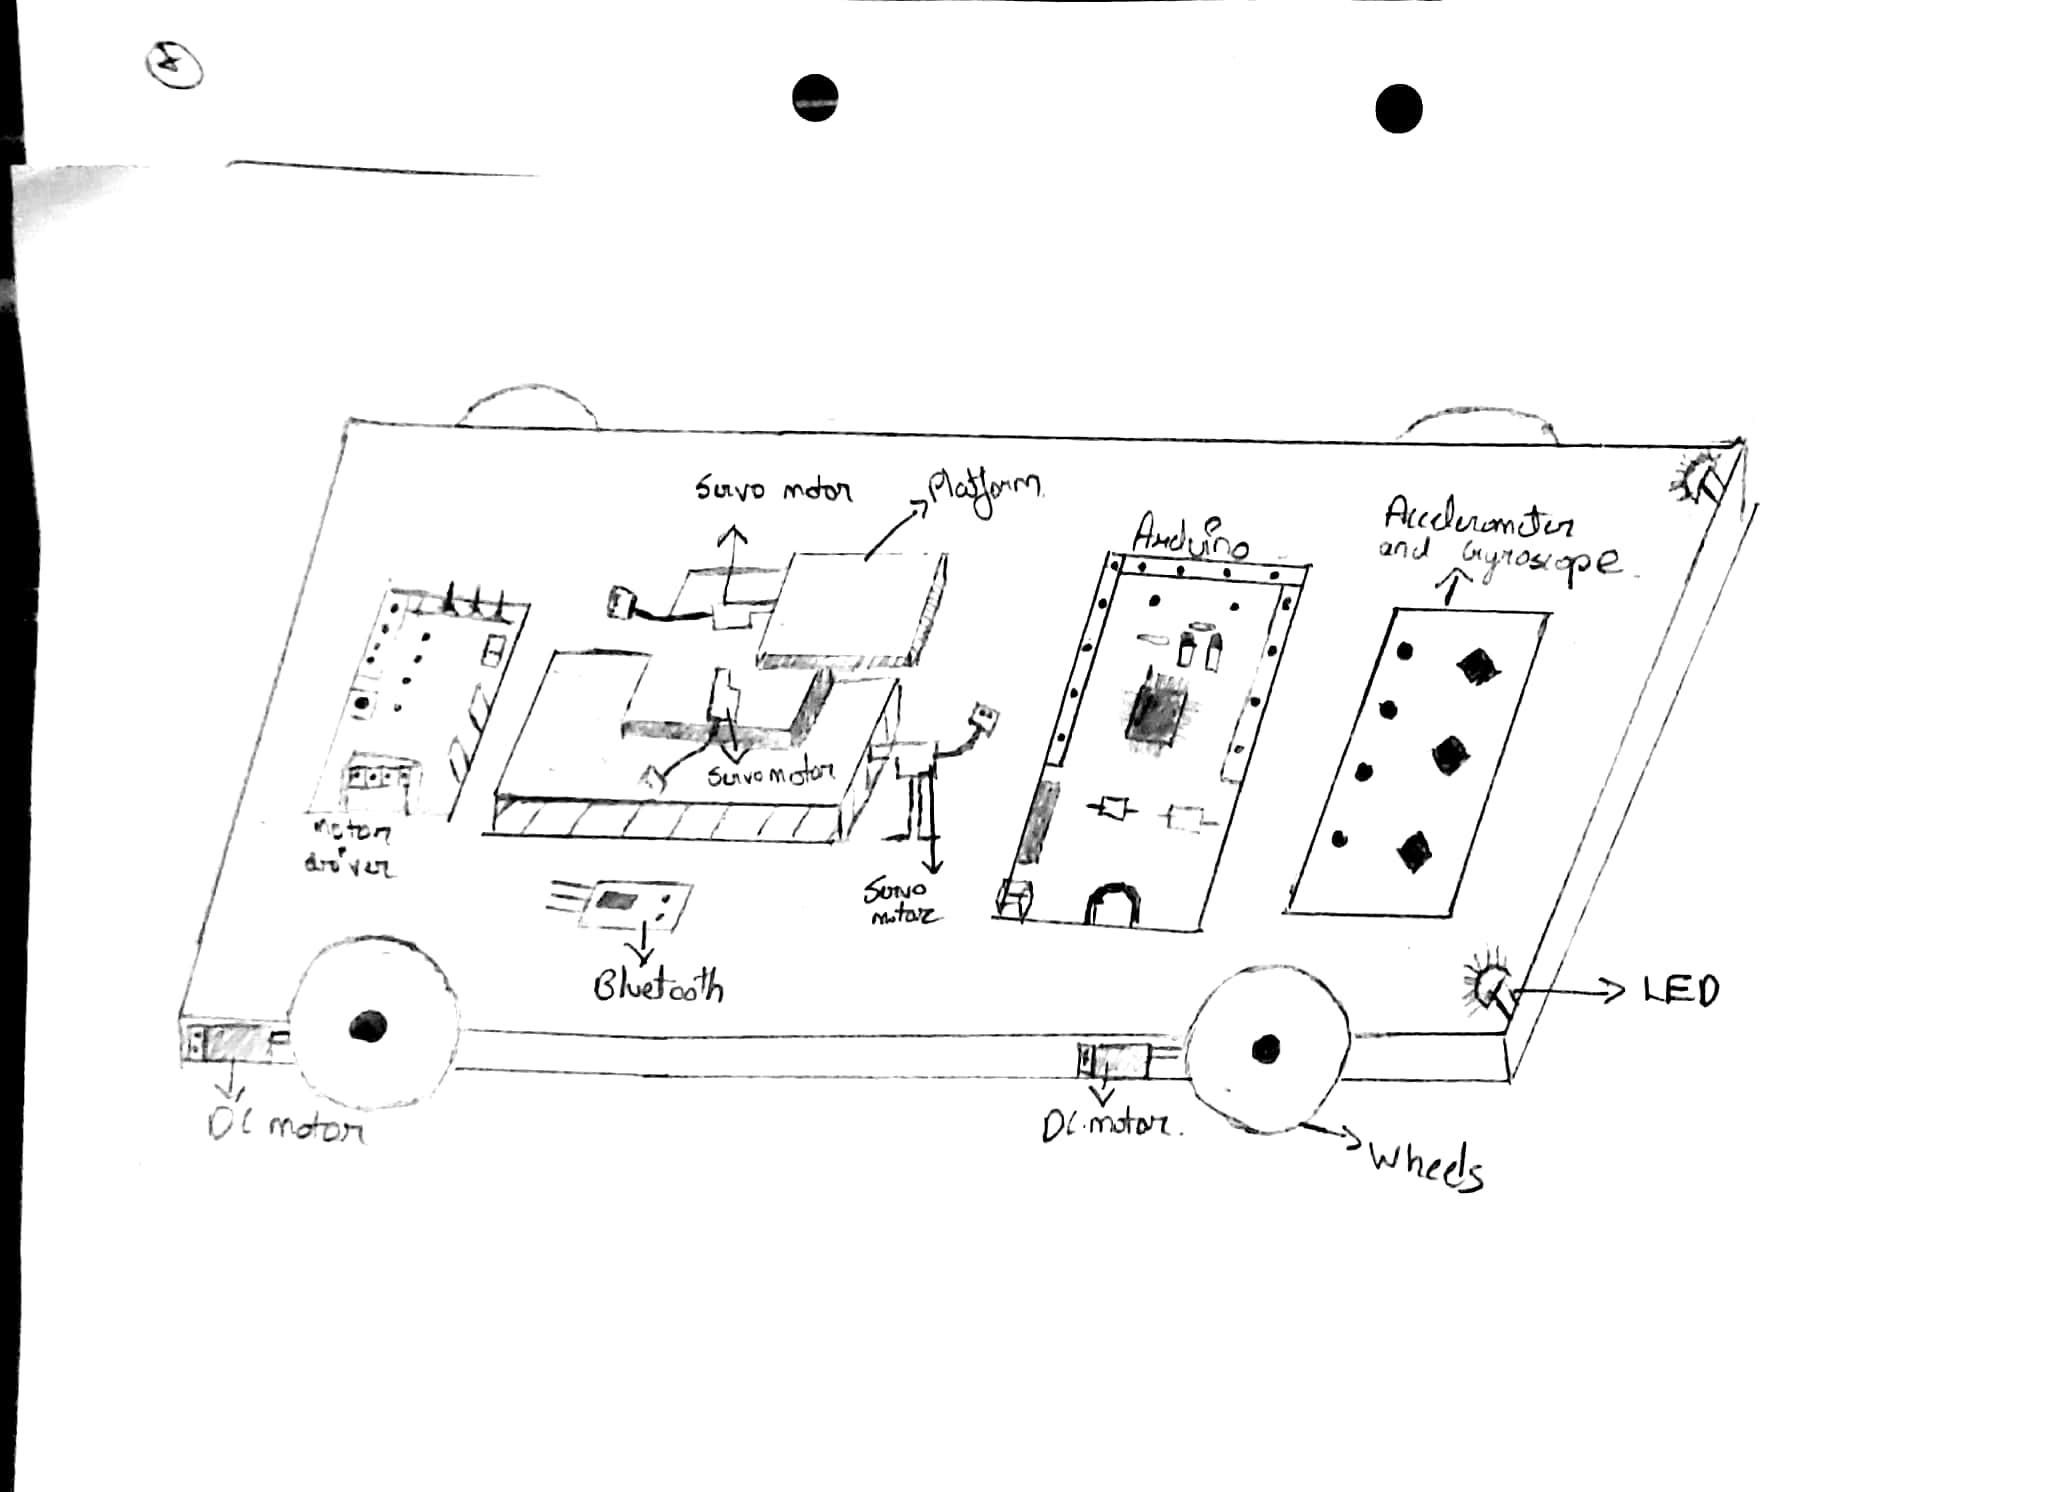 Servo motor
Platform
Arduino
Accelerometer
and Gyroscope.
Servo motor
Motor
driver
Servo
motor
Bluetooth
LED
DC motor
DC motor.
Wheels